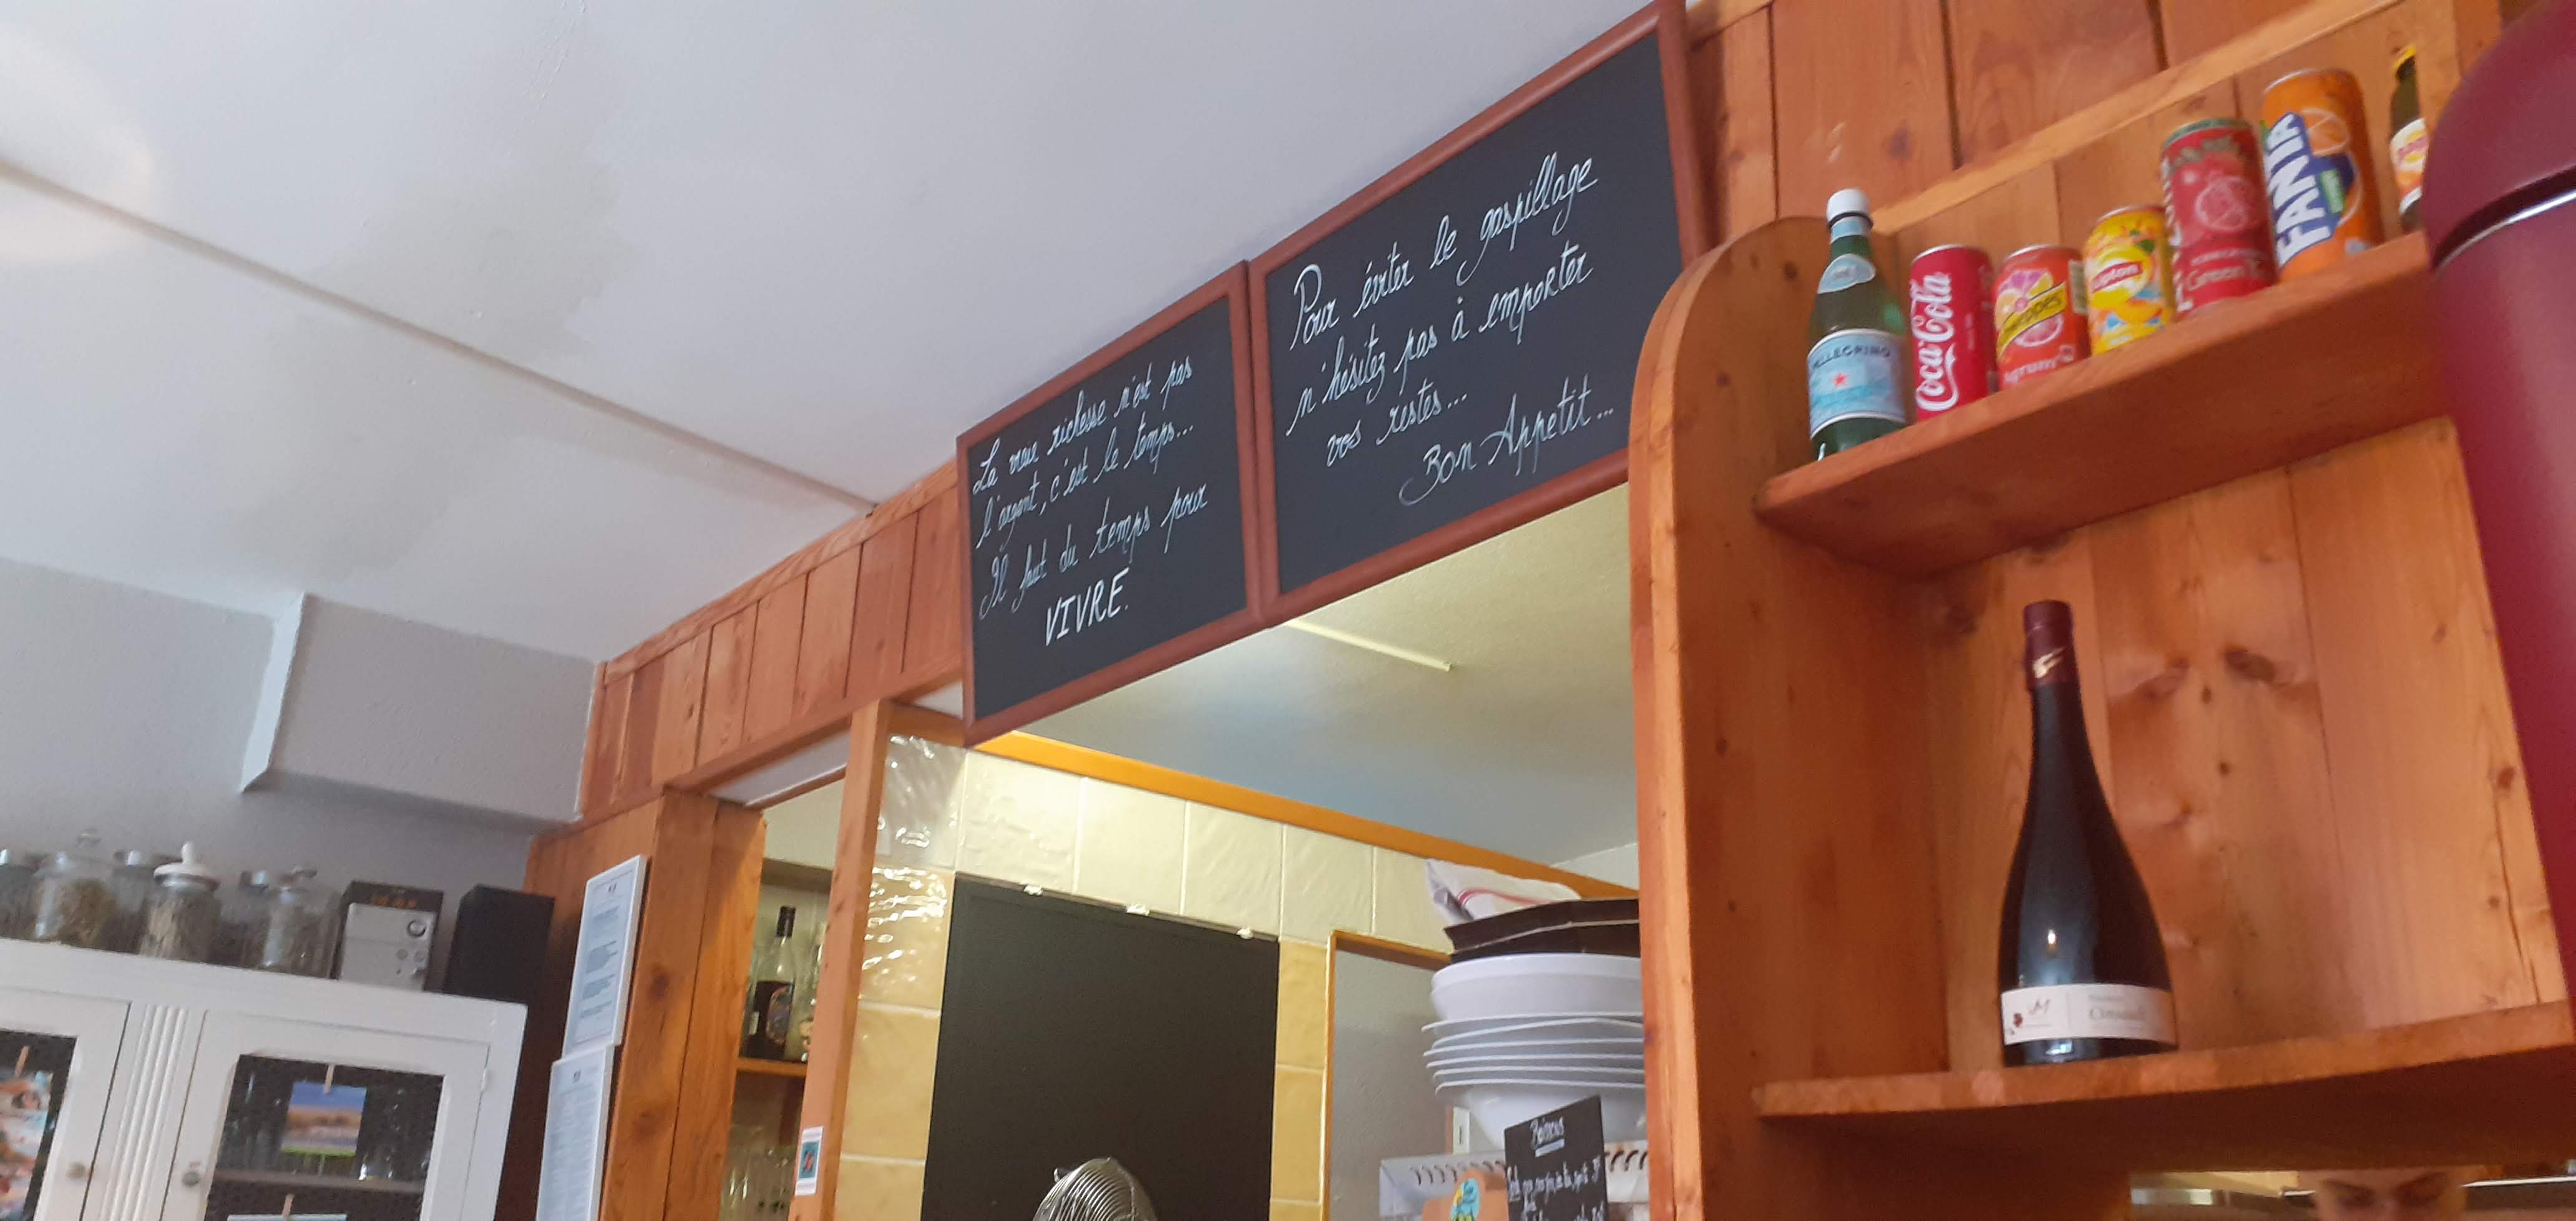 La vraie richesse n'est pas
l'argent, c'est le temps...
Il faut du temps pour
VIVRE.
Pour éviter le gaspillage
n'hésitez pas à emporter
vos restes...
Bon Appetit...
PELLEGRINO
Coca-Cola
Schweppes
Agrum
Lipton
Green
FANTA
Cinsault
Boissons